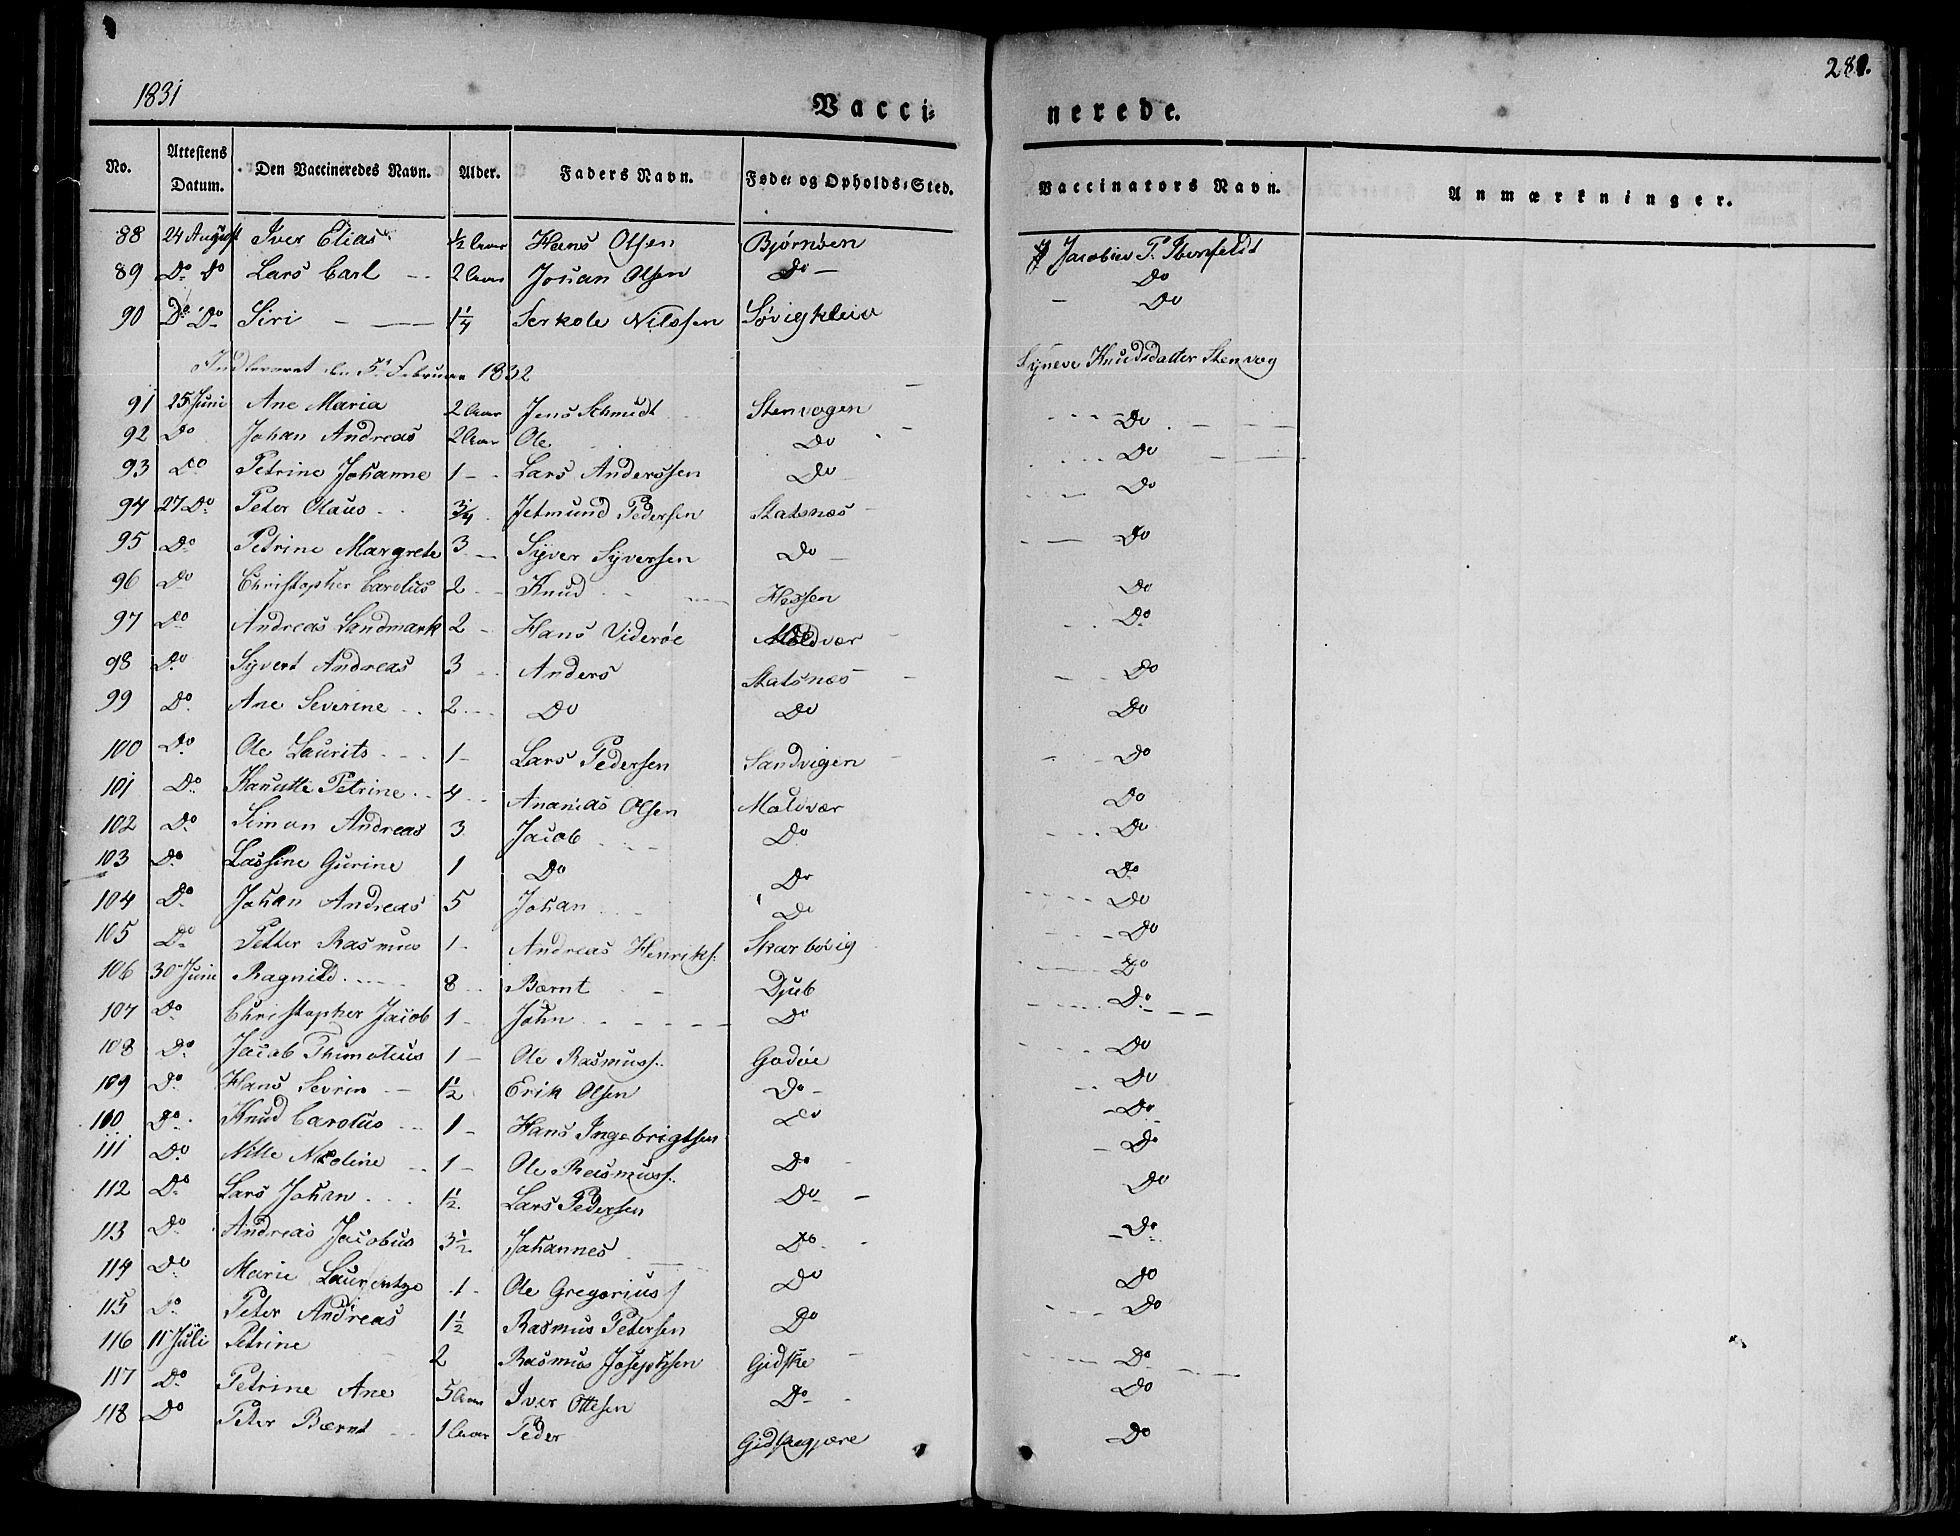 1831
281.
Vacci-
nerede.
No. Attestens Datum. Den Vaccineredes Navn. Alder. Faders Navn. Føde- og Opholds-Sted. Vaccinators Navn. Anmærkninger.
88 24 August Iver Elias ½ Aar Hans Olsen Bjørnøen Jacobus P.
89 Do Do Lars Carl 2 Aar Johan Olsen Do Do
90 Do Do Siri 1¼ Serkole Nilssen Søvigkleiv Do
Indleveret den 5te Februar 1832 Syneve Knudsdatter Stenvog
91 25 Juni Ane Maria 2 Aar Jens Schmidt Stenvogen Do
92 Do Johan Andreas 2 Aar Ole Do Do
93 Do Petrine Johanne 1 Lars Anderssen Do Do
94 27 Do Peter Olaus ¾ Jetmund Pedersen Slatsnæs
95 Do Petrine Margrete 3 Syver Syversen Do Do
96 Do Christopher Carolus 2 Knud Hessen Do
97 Do Andreas Landmark 2 Hans Viderøe Moldvær Do
98 Do Syvert Andreas 3 Anders Slatsnæs Do
99 Do Ane Severine 2 Do Do Do
100 Do Ole Laurits 1 Lars Pedersen Sandvigen Do
101 Do Hanutte Petrine 4 Ananias Olsen Molvær Do
102 Do Simon Andreas 3 Jacob Do Do
103 Do Lassine Gurine 1 Do Do Do
104 Do Johan Andreas 5 Johan Do Do
105 Do Petter Rasmus 1 Andreas Henriks. Skarbøvig Do
106 30 Juni Ragnild 8 Bærnt Djub Do
107 Do Christopher Jacob 1 John Do Do
108 Do Jacob Thimotius 1 Ole Rasmuss. Godøe Do
109 Do Hans Sevrin 1½ Erik Olsen Do Do
110 Do Knud Carolus 1 Hans Ingebrigtsen Do Do
111 Do Nille Nicoline 1 Ole Rasmuss. Do Do
112 Do Lars Johan 1½ Lars Pedersen Do Do
113 Do Andreas Jacobus 3½ Johannes Do Do
114 Do Marie Laurentze 1 Ole Gregorius Do Do
115 Do Peter Andreas 1½ Rasmus Petersen Do Do
116 11 Juli Petrine 2 Rasmus Josephsen Gidske Do
117 Do Petrine Ane 5 Aar Iver Ottesen Do Do
118 Do Peter Bærnt 1 Aar Peder Gidskegjære Do